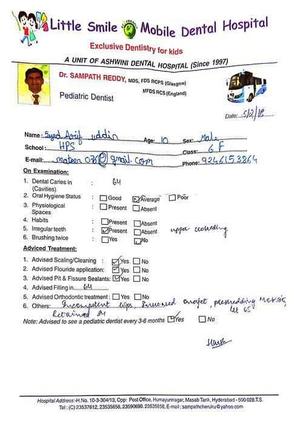 Little Smile Mobile Dental Hospital
Exclusive Dentistry for kids
A UNIT OF ASHWINI DENTAL HOSPITAL (Since 1997)
Dr. SAMPATH REDDY, MDS, FDS RCPS (Glasgow)
MFDS RCS (England)
Pediatric Dentist
Date:
Name: Syed Arif uddin Age: 10 Sex: Male
School: HPS Class: 6 F
E-mail: @gmail.com Phone: 9246153864
On Examination:
1. Dental Caries in (Cavities) : 64
2. Oral Hygiene Status : Good Average Poor
3. Physiological Spaces : Present Absent
4. Habits : Present Absent
5. Irregular teeth : Present Absent upper crowding
6. Brushing twice : Yes No
Adviced Treatment:
1. Advised Scaling/Cleaning : Yes No
2. Advised Flouride application: Yes No
3. Advised Pit & Fissure Sealants: Yes No
4. Advised Filling in 64
5. Advised Orthodontic treatment : Yes No
6. Others: Incompetent lips, Increased overjet,
Retained
Note: Advised to see a pediatric dentist every 3-6 months Yes No
Hospital Address: H.No. 10-3-304/13, Opp: Post Office, Humayunnagar, Masab Tank, Hyderabad - 500 028 T.S.
Tel: (C) 23537612, 23535658, 23590690, 23535658, E-mail: sampathcheruku@yahoo.com